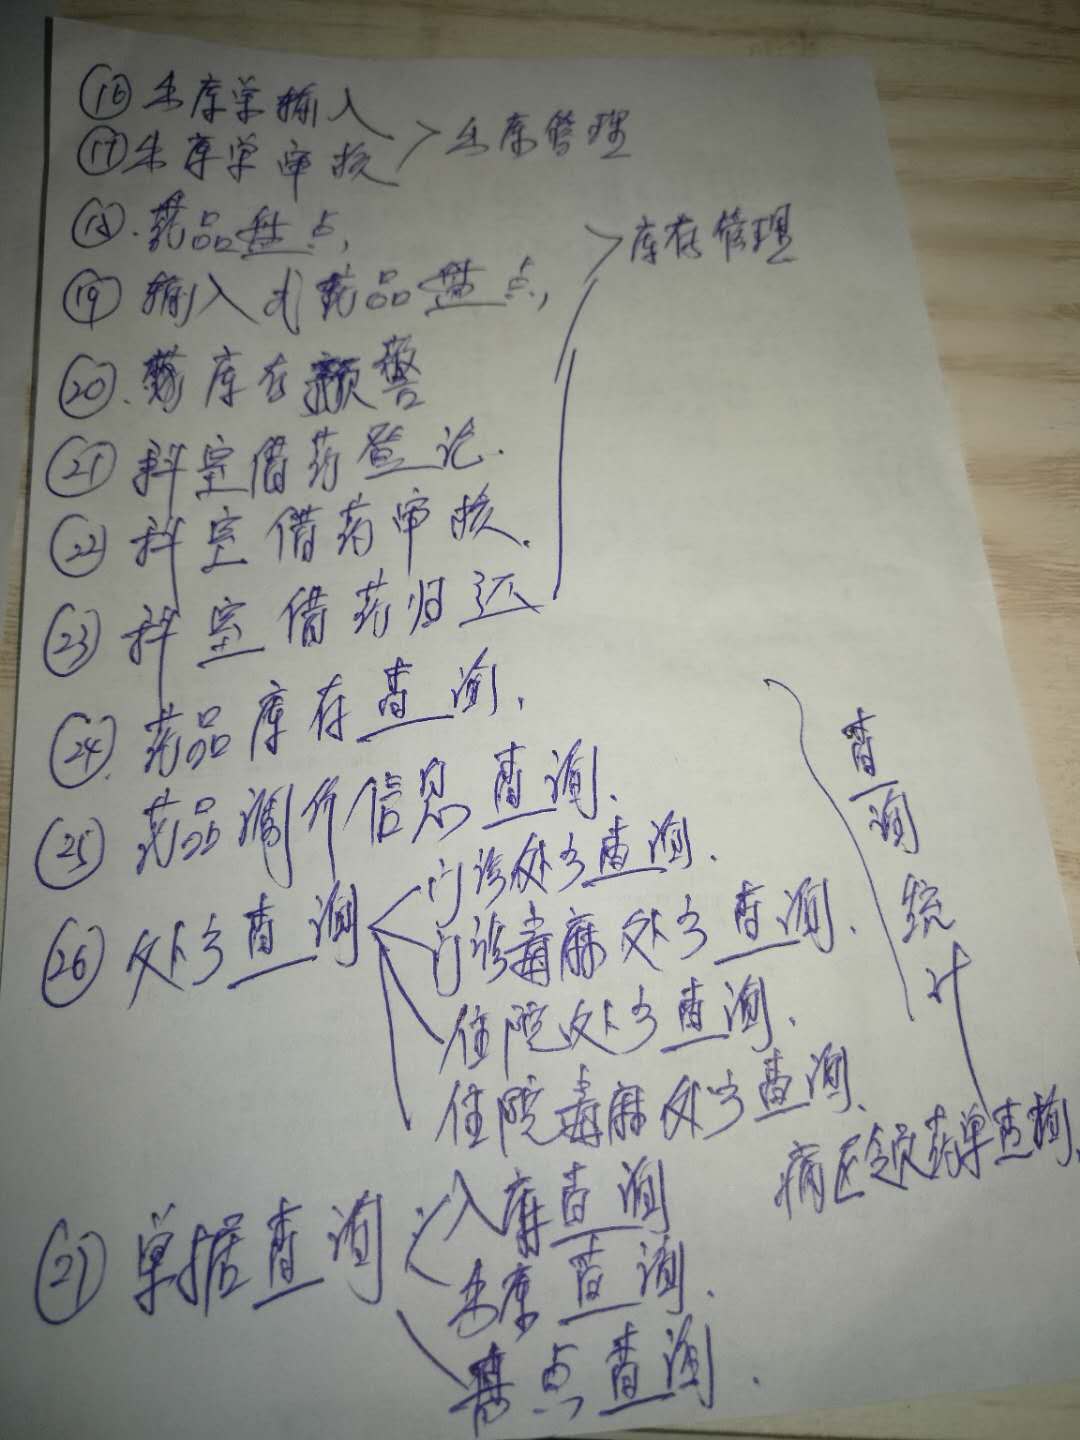 ⑯ 出库单输入
⑰ 出库单审核 > 出库管理
⑱. 药品盘点,
⑲ 输入式药品盘点, > 库存管理
⑳. 库存预警
㉑ 科室借药登记.
㉒ 科室借药审核.
㉓ 科室借药归还
㉔. 药品库存查询.
㉕ 药品调价信息查询.
查询统计
㉖ 处方查询
门诊处方查询.
门诊毒麻处方查询.
住院处方查询.
住院毒麻处方查询.
病区领药单查询.
㉗ 单据查询
入库查询
出库查询.
盘点查询.